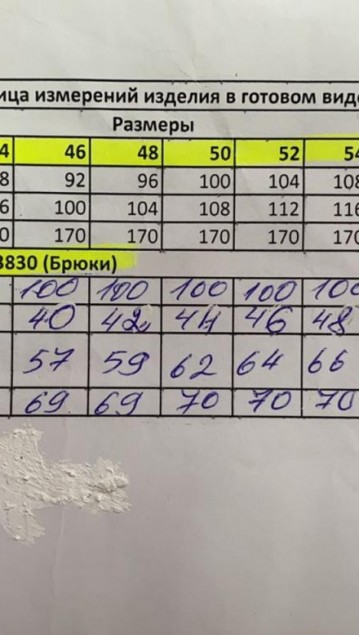 ица измерений изделия в готовом виде
Размеры
4 46 48 50 52 54
8 92 96 100 104 108
6 100 104 108 112 116
0 170 170 170 170 170
3830 (Брюки)
100 100 100 100 100
40 42 44 46 48
57 59 62 64 66
69 69 70 70 70